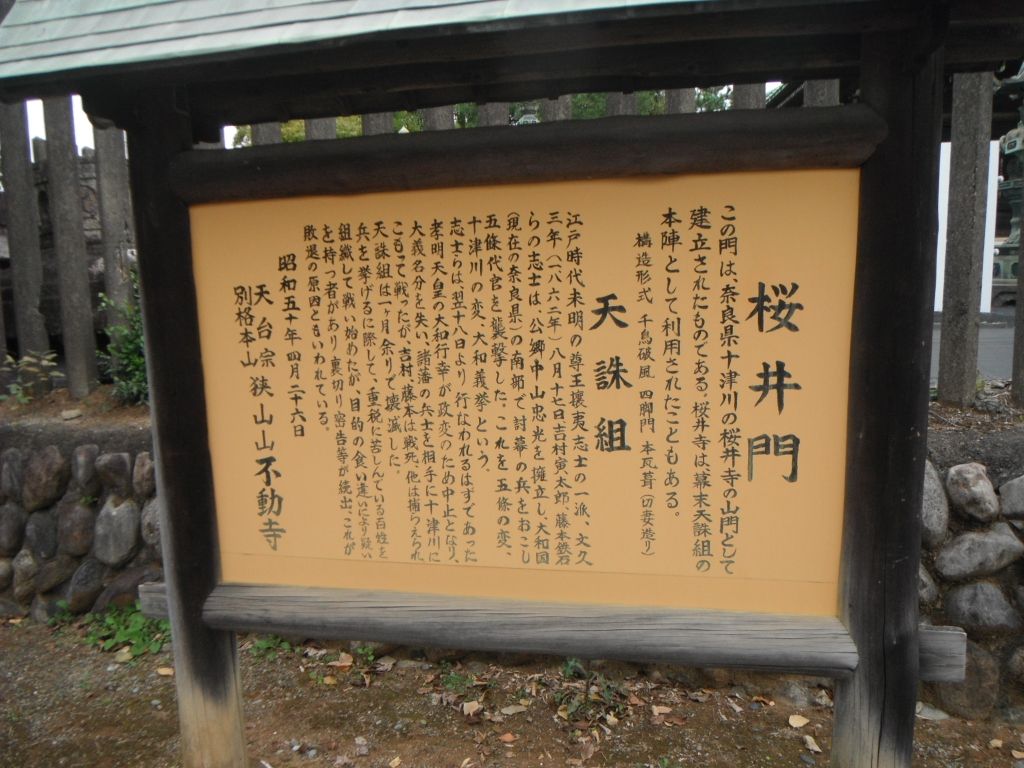 桜井門
この門は奈良県十津川の桜井寺の山門として
建立されたものである。桜井寺は幕末天誅組の
本陣として利用されたこともある。
構造形式 千鳥破風 四脚門 本瓦葺(切妻造り)
天誅組
江戸時代末明の尊王攘夷志士の一派、文久
三年(一八六二年)八月十七日吉村寅太郎、藤本鉄石
らの志士は、公郷中山忠光を擁立し大和国
(現在の奈良県)の南部で討幕の兵をおこし
五條代官を襲撃した。これを五條の変、
十津川の変、大和義挙という。
志士らは翌十八日より行なわれるはずであった
孝明天皇の大和行幸が政変のため中止となり、
大義名分を失い、諸藩の兵士を相手に十津川に
こもって戦ったが、吉村、藤本は戦死、他は捕らえられ
天誅組は一ヶ月余りで壊滅した。
兵を挙げるに際して、重税に苦しんでいる百姓を
組織して戦い始めたが、目的の食い違いにより疑い
を持つ者があり、裏切り密告等が続出、これが
敗退の原因ともいわれている。
昭和五十年四月二十六日
天台宗
別格本山 狭山山不動寺